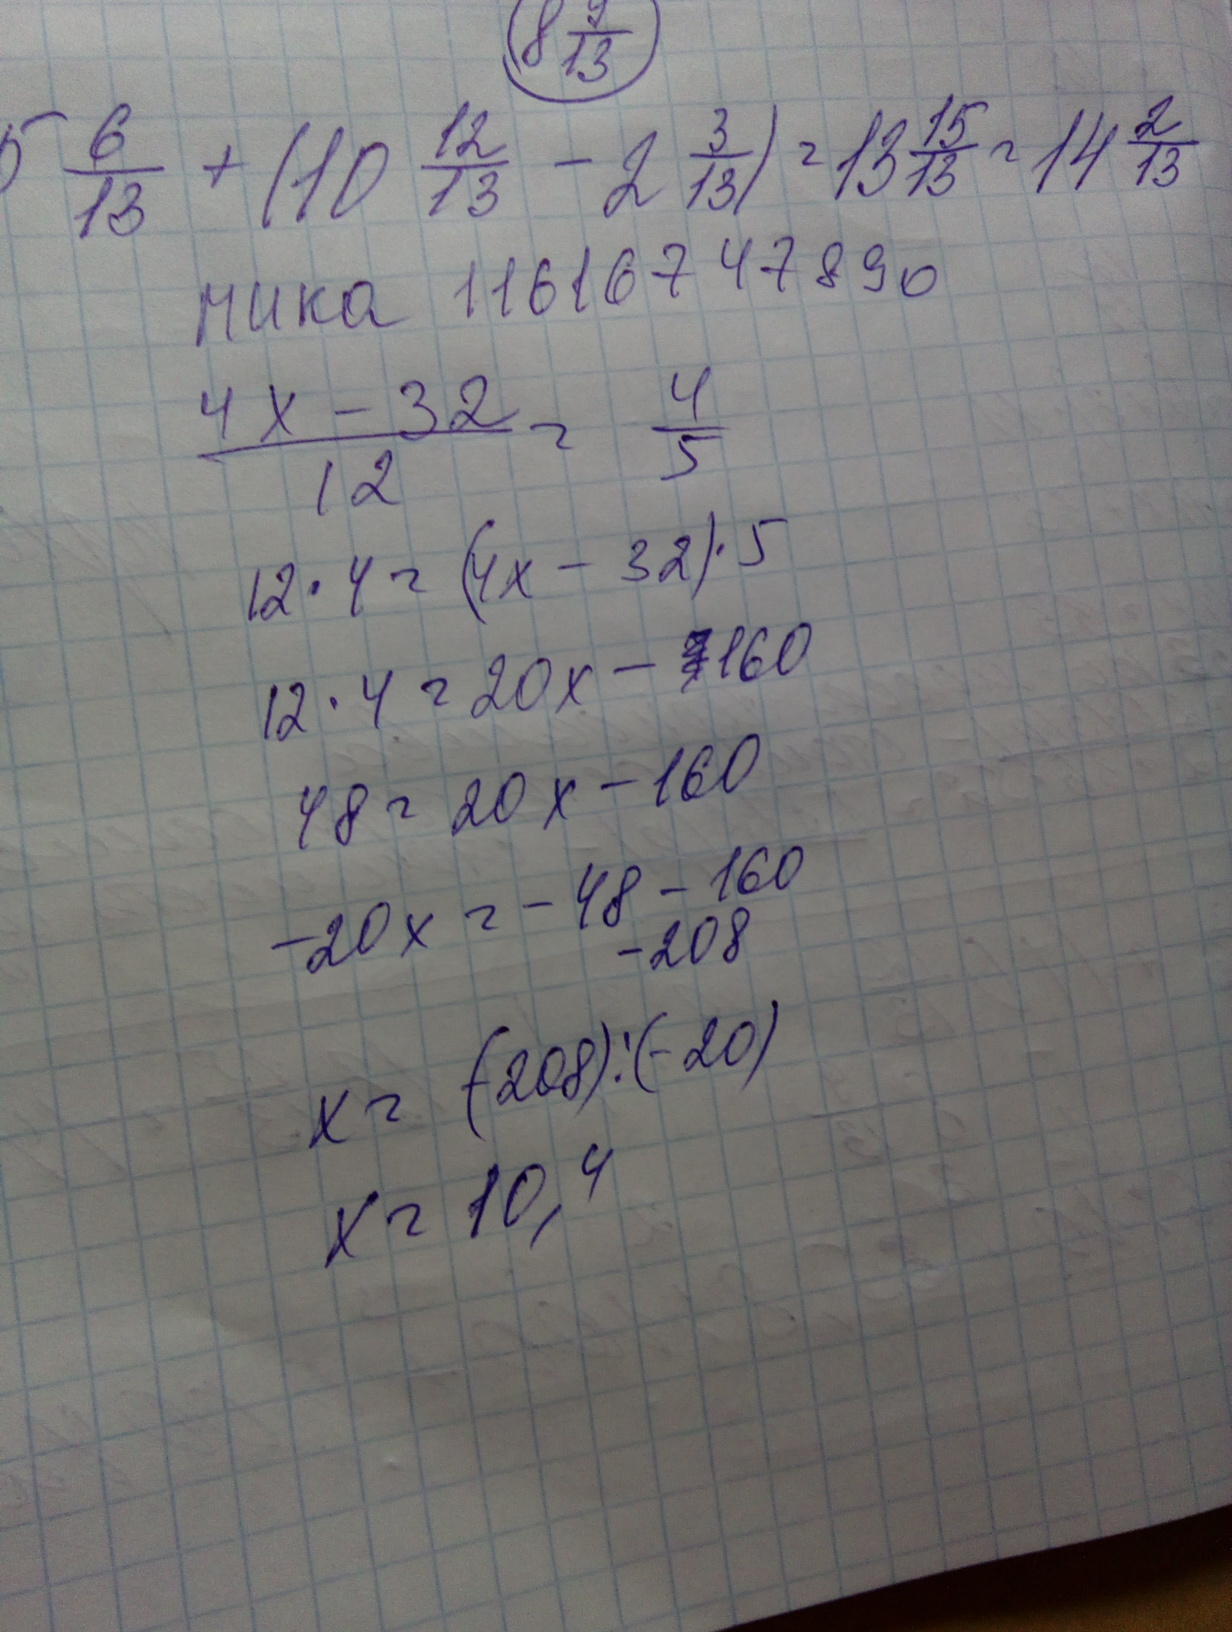 8 9/13
5 6/13 + (10 12/13 - 2 3/13) = 13 15/13 = 14 2/13
мика 11616747890
(4x - 32)/12 = 4/5
12 · 4 = (4x - 32) · 5
12 · 4 = 20x - 160
48 = 20x - 160
-20x = -48 - 160
-208
x = (-208) : (-20)
x = 10,4